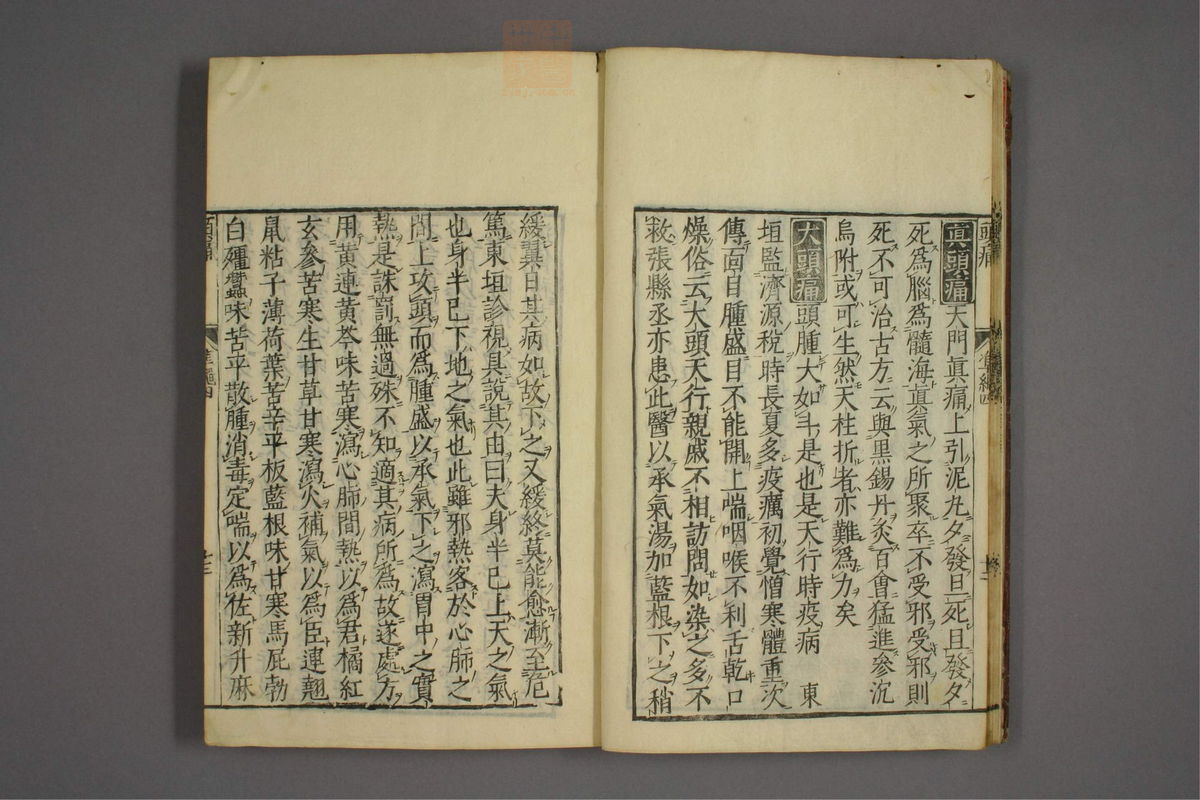 真頭痛天門真痛上引泥丸夕發旦死旦發夕
死爲腦爲髓海真氣之所聚卒不受邪受邪則
死不可治古方云與黑錫丹灸百會猛進參沉
烏附或可生然天柱折者亦難爲力矣
大頭痛頭腫大如斗是也是天行時疫病 東
垣監濟源稅時長夏多疫癘初覺憎寒體重次
傳面目腫盛目不能開上喘咽喉不利舌乾口
燥俗云大頭天行親戚不相訪問如染之多不
救張縣丞亦患此醫以承氣湯加藍根下之稍
緩翼日其病如故下之又緩終莫能愈漸至危
篤東垣診視具說其由曰夫身半已上天之氣
也身半已下地之氣也此雖邪熱客於心肺之
間上攻頭而爲腫盛以承氣下之瀉胃中之實
熱是誅罰無過殊不知適其病所爲故遂處方
用黃連黃芩味苦寒瀉心肺間熱以爲君橘紅
玄參苦寒生甘草甘寒瀉火補氣以爲臣連翹
鼠粘子薄荷葉苦辛平板藍根味甘寒馬屁勃
白殭蠶味苦平散腫消毒定喘以爲佐新升麻
頭痛
準繩四
十三